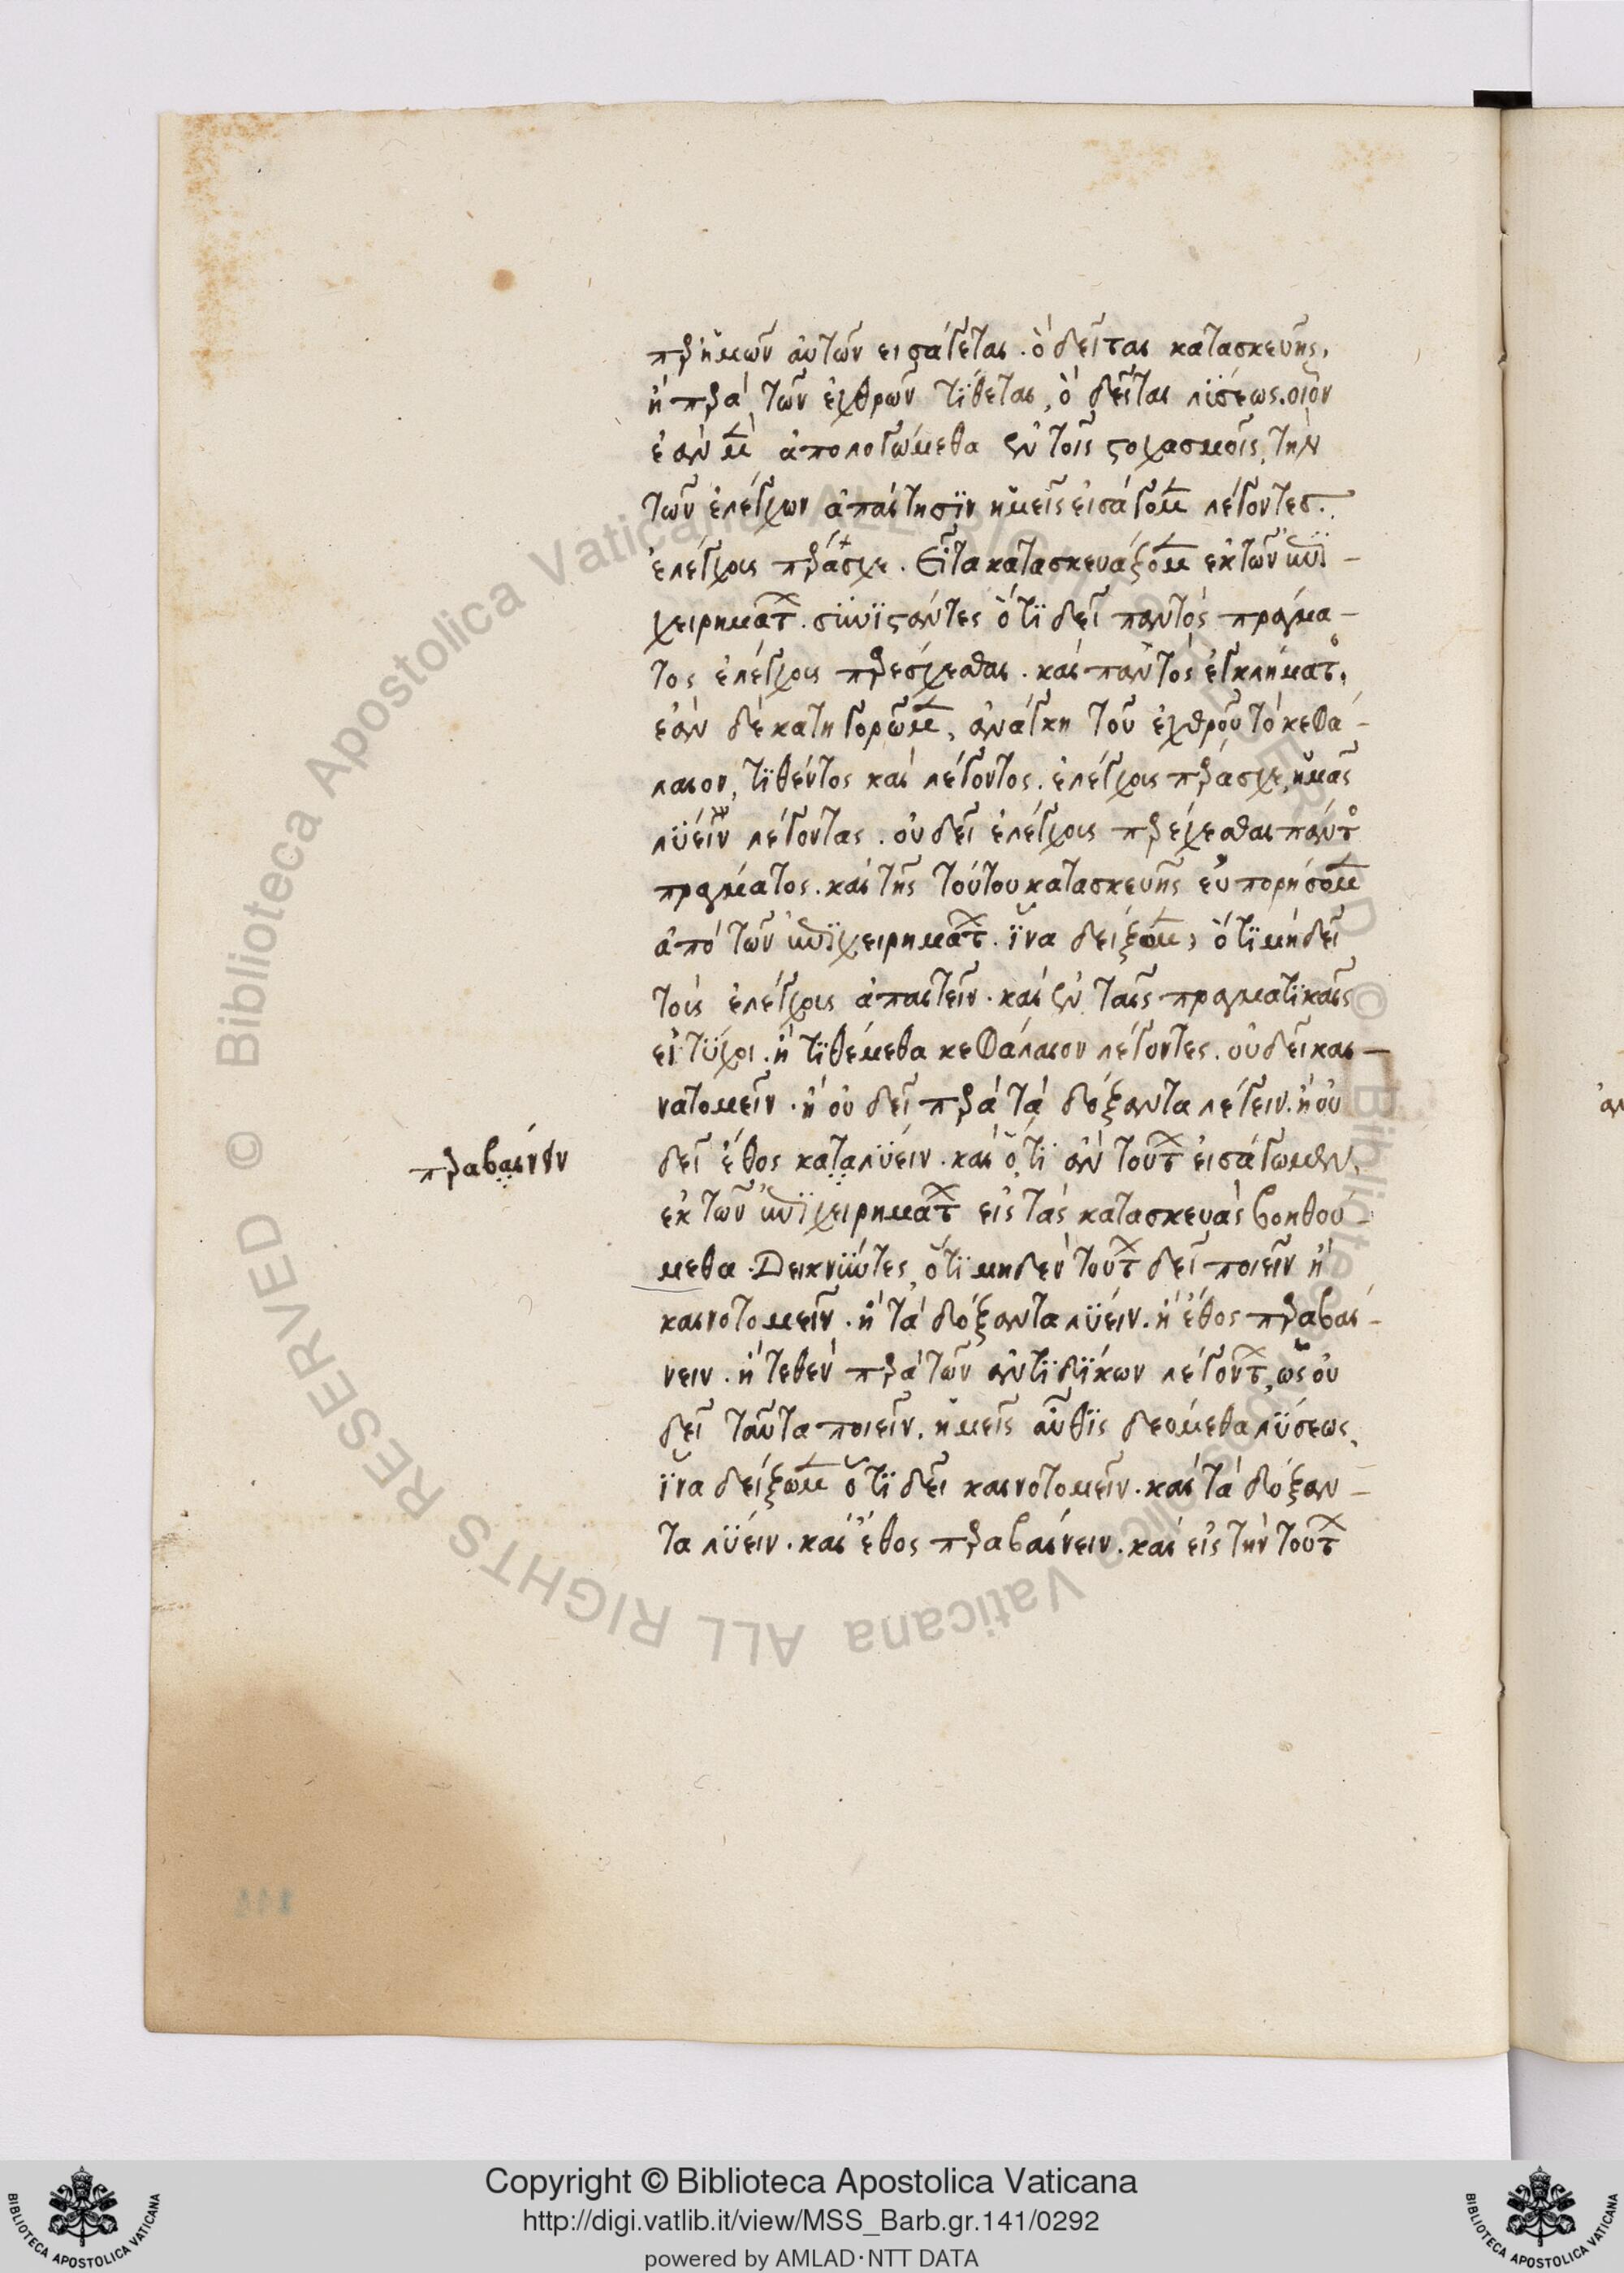 πρἡμῶν αὐτῶν εισάγεται. ὁ δεῖται κατασκευῆς,
ἢ πρὰ τῶν ἐχθρῶν τίθεται, ὁ δεῖται λύσεως. οἷον
ἐὰν μ̀ ἀπολογώμεθα ἐν τοῖς ϛοχασμοῖς, τὴν
τῶν ἐλέγχων ἀπαίτησϊν ἡμεῖς εἰσάγομ λέγοντες.
ἐλέγχοις πράσχε. Εἶτα κατασκευάζομ ἐκ τῶν ἐπϊ -
χειρημάτ. συνϊϛάντες ὅτϊ δεῖ παντὸς πράγμα -
τος ἐλέγχοις πρέσχεσθαι. καὶ παντὸς ἐγκλήματο,
ἐὰν δὲ κατηγορῶμ, ἀνάγκη τοῦ ἐχθροῦ τὸ κεφά -
λαιον, τϊθέντος καὶ λέγοντος. ἐλέγχοις πράσχε, ἡμᾶς
λϋειν λέγοντας. οὐ δεῖ ἐλέγχοις πρέχεσθαι παντο
πράγματος. καὶ τῆς τούτου κατασκευῆς εὐπορήσομ
ἀπὸ τῶν ἐπϊχειρημάτ. ἵνα δείξωμ, ὅτϊ μὴ δεῖ
τοὶς ἐλέγχοις ἀπαιτεῖν. καὶ ἐν ταῖς πραγματϊκαῖς
εἰ τϋχοι. ἢ τϊθέμεθα κεφάλαιον λέγοντες. οὐ δεῖ και -
νατομεῖν. ἢ οὐ δεῖ πρὰ τὰ δόξαντα λέγειν. ἢ οὐ
δεῖ ἔθος καταλϋειν. καὶ ὅ,τϊ ἂν τούτ εἰσάγωμεν,
πραβαινεν
ἐκ τῶν ἐπϊχειρημάτ εἰς τὰς κατασκευὰς βοηθού -
μεθα. Δεικνϋντες, ὅτϊ μηδὲν τούτ δεῖ ποιεῖν ἢ
καινοτομεῖν. ἢ τὰ δόξαντα λϋειν. ἢ ἔθος πραβαί -
νειν. ἢ τεθὲν πρὰ τῶν ἀντϊδϊκων λέγοντ, ὡς οὐ
δεῖ ταῦτα ποιεῖν. ἡμεῖς αὖθϊς δεόμεθα λϋσεως,
ἵνα δείξωμ ὅτϊ δεῖ καινοτομεῖν. καὶ τὰ δόξαν -
τα λϋειν. καὶ ἔθος πραβαίνειν. καὶ εἰς τὴν τούτ
Copyright © Biblioteca Apostolica Vaticana
http://digi.vatlib.it/view/MSS_Barb.gr.141/0292
powered by AMLAD·NTT DATA
BIBLIOTECA APOSTOLICA VATICANA
BIBLIOTECA APOSTOLICA VATICANA
© Biblioteca Apostolica Vaticana ALL RIGHTS RESERVED